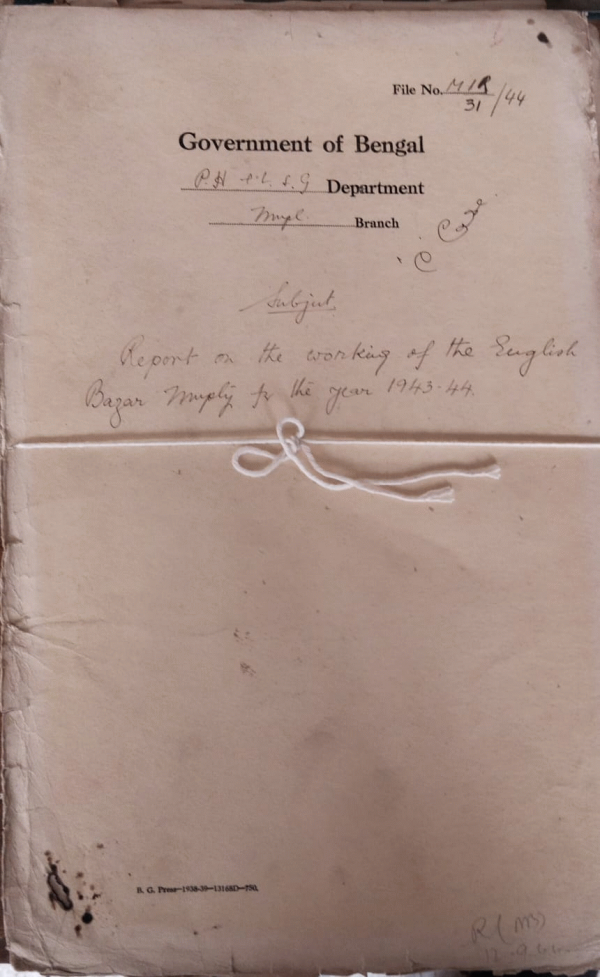 File No. M1R
31 /44
Government of Bengal
P.H & L. S. G Department
Mupl. Branch
Subject
Report on the working of the English
Bazar Muply for the year 1943-44.
B. G. Press—1938-39—13168D—750.